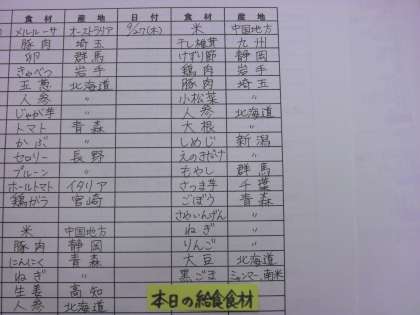 食材 産地 日付 食材 産地
メルルーサ オーストラリア 9/27(木) 米 中国地方
豚肉 埼玉 干し椎茸 九州
卵 群馬 けずり節 静岡
きゃべつ 岩手 鶏肉 岩手
玉葱 北海道 豚肉 埼玉
人参 〃 小松菜 〃
じゃが芋 〃 人参 北海道
トマト 青森 大根 〃
かぶ 〃 しめじ 新潟
セロリー 長野 えのきだけ 〃
プルーン 〃 もやし 群馬
ホールトマト イタリア さつま芋 千葉
鶏がら 宮崎 ごぼう 青森
さやいんげん 〃
米 中国地方 ねぎ 〃
豚肉 静岡 りんご 〃
にんにく 青森 大豆 北海道
ねぎ 〃 黒ごま ミャンマー、南米
生姜 高知
人参 北海道
本日の給食食材